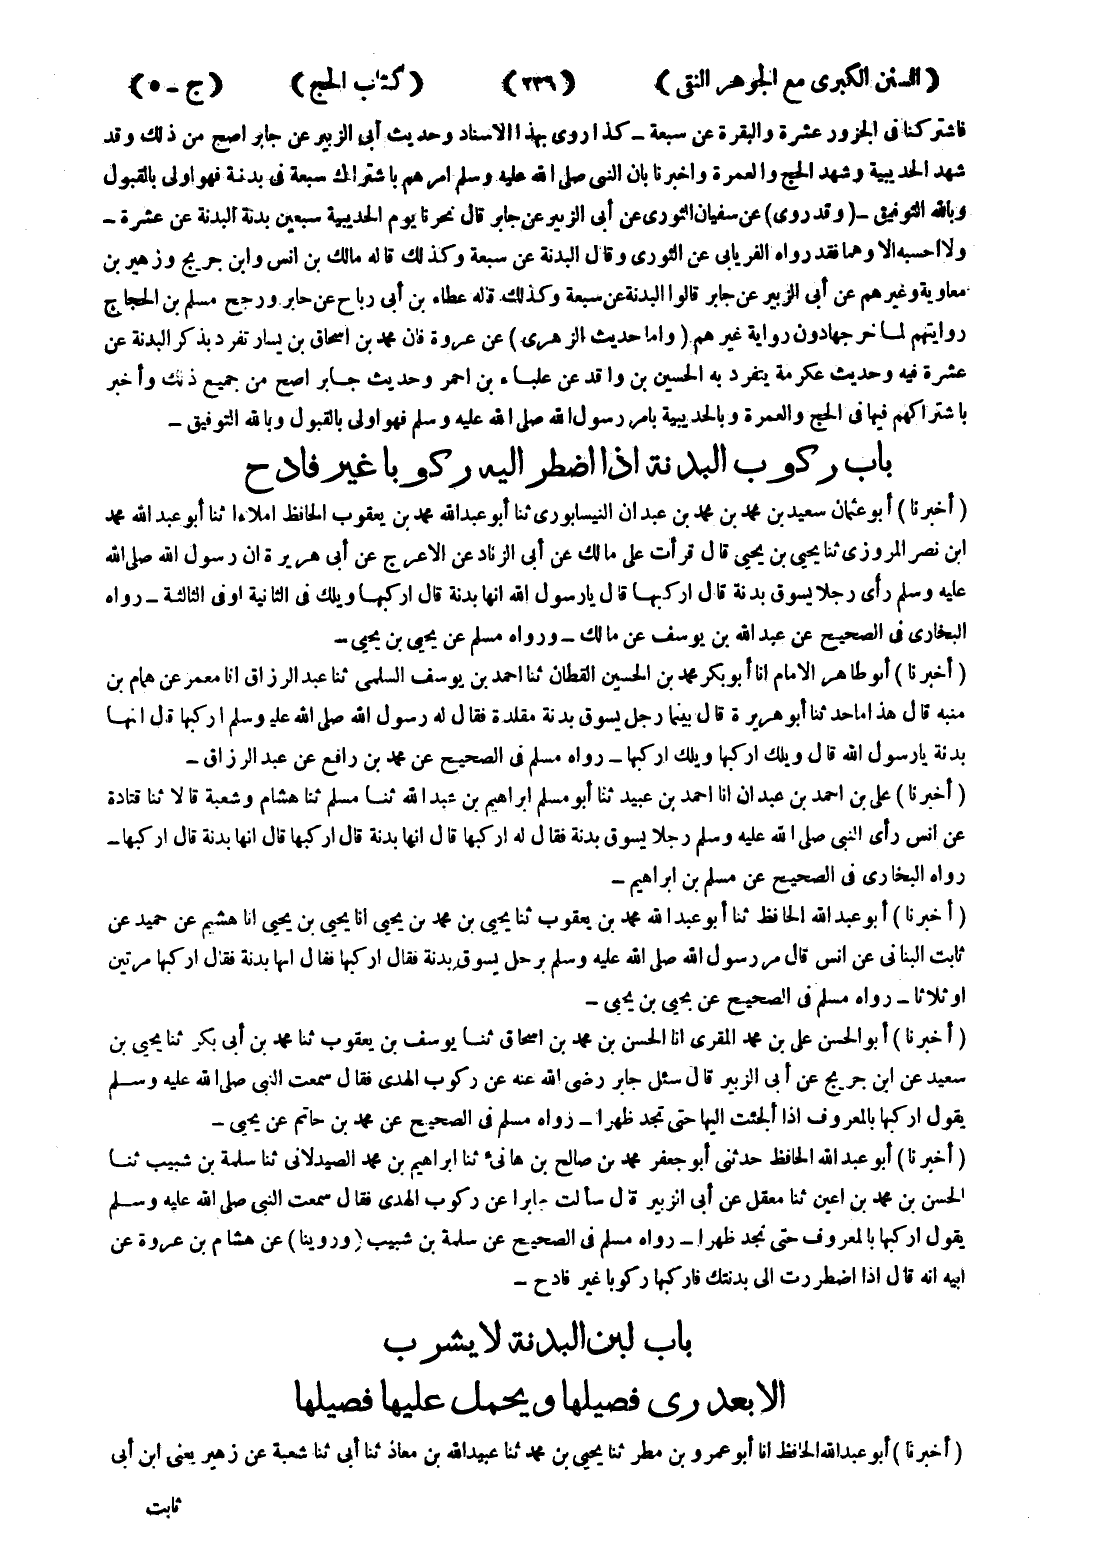 (السنن الكبرى مع الجوهر النقى) (٢٣٦) (كتاب الحج) (ج - ٥)
فاشتركنا فى الجزور عشرة والبقرة عن سبعة - كذا روى بهذا الاسناد وحديث أبى الزبير عن جابر اصح من ذلك وقد
شهد الحديبية وشهد الحج والعمرة واخبرنا بان النبى صلى الله عليه وسلم امرهم باشتراك سبعة فى بدنة فهو اولى بالقبول
وبالله التوفيق - (وقد روى) عن سفيان الثورى عن أبى الزبير عن جابر قال نحرنا يوم الحديبية سبعين بدنة البدنة عن عشرة -
ولا احسبه الا وهما فقد رواه الفريابى عن الثورى وقال البدنة عن سبعة وكذلك قاله مالك بن انس وابن جريج وزهير بن
معاوية وغيرهم عن أبى الزبير عن جابر قالوا البدنة عن سبعة وكذلك قاله عطاء بن أبى رباح عن جابر ورجح مسلم بن الحجاج
روايتهم لما خرجها دون رواية غيرهم (واما حديث الزهرى) عن عروة فان محمد بن اسحاق بن يسار تفرد بذكر البدنة عن
عشرة فيه وحديث عكرمة يتفرد به الحسين بن واقد عن علباء بن احمر وحديث جابر اصح من جميع ذلك وأخبر
باشتراكهم فيها فى الحج والعمرة وبالحديبية بامر رسول الله صلى الله عليه وسلم فهو اولى بالقبول وبالله التوفيق -
باب ركوب البدنة اذا اضطر اليه ركوبا غير فادح
(أخبرنا) أبو عثمان سعيد بن محمد بن محمد بن عبدان النيسابورى ثنا أبو عبدالله محمد بن يعقوب الحافظ املاءا ثنا أبو عبد الله محمد
ابن نصر المروزى ثنا يحيى بن يحيى قال قرأت على مالك عن أبى الزناد عن الاعرج عن أبى هريرة ان رسول الله صلى الله
عليه وسلم رأى رجلا يسوق بدنة قال اركبها قال يارسول الله انها بدنة قال اركبها ويلك فى الثانية اوفى الثالثة - رواه
البخارى فى الصحيح عن عبد الله بن يوسف عن مالك - ورواه مسلم عن يحيى بن يحيى -
(أخبرنا) أبو طاهر الامام انا أبو بكر محمد بن الحسين القطان ثنا احمد بن يوسف السلمى ثنا عبد الرزاق انا معمر عن همام بن
منبه قال هذا ماحدثنا أبو هريرة قال بينما رجل يسوق بدنة مقلدة فقال له رسول الله صلى الله عليه وسلم اركبها قال انها
بدنة يارسول الله قال ويلك اركبها ويلك اركبها - رواه مسلم فى الصحيح عن محمد بن رافع عن عبد الرزاق -
(أخبرنا) على بن احمد بن عبدان انا احمد بن عبيد ثنا أبو مسلم ابراهيم بن عبد الله ثنا مسلم ثنا هشام وشعبة قالا ثنا قتادة
عن انس رأى النبى صلى الله عليه وسلم رجلا يسوق بدنة فقال له اركبها قال انها بدنة قال اركبها قال انها بدنة قال اركبها -
رواه البخارى فى الصحيح عن مسلم بن ابراهيم -
(أخبرنا) أبو عبد الله الحافظ ثنا أبو عبد الله محمد بن يعقوب ثنا يحيى بن محمد بن يحيى انا يحيى بن يحيى انا هشيم عن حميد عن
ثابت البنانى عن انس قال مر رسول الله صلى الله عليه وسلم برجل يسوق بدنة فقال اركبها فقال انها بدنة فقال اركبها مرتين
او ثلاثا - رواه مسلم فى الصحيح عن يحيى بن يحيى -
(أخبرنا) أبو الحسن على بن محمد المقرى انا الحسن بن محمد بن اسحاق ثنا يوسف بن يعقوب ثنا محمد بن أبى بكر ثنا يحيى بن
سعيد عن ابن جريج عن أبى الزبير قال سئل جابر رضى الله عنه عن ركوب الهدى فقال سمعت النبى صلى الله عليه وسلم
يقول اركبها بالمعروف اذا ألجئت اليها حتى تجد ظهرا - رواه مسلم فى الصحيح عن محمد بن حاتم عن يحيى -
(أخبرنا) أبو عبد الله الحافظ حدثنى أبو جعفر محمد بن صالح بن هانىء ثنا ابراهيم بن محمد الصيدلانى ثنا سلمة بن شبيب ثنا
الحسن بن محمد بن اعين ثنا معقل عن أبى الزبير قال سألت جابرا عن ركوب الهدى فقال سمعت النبى صلى الله عليه وسلم
يقول اركبها بالمعروف حتى تجد ظهرا - رواه مسلم فى الصحيح عن سلمة بن شبيب (وروينا) عن هشام بن عروة عن
ابيه انه قال اذا اضطررت الى بدنتك فاركبها ركوبا غير فادح -
باب لبن البدنة لا يشرب
الا بعد رى فصيلها ويحمل عليها فصيلها
(أخبرنا) أبو عبدالله الحافظ انا أبو عمرو بن مطر ثنا يحيى بن محمد ثنا عبيدالله بن معاذ ثنا أبى ثنا شعبة عن زهير يعنى ابن أبى
ثابت